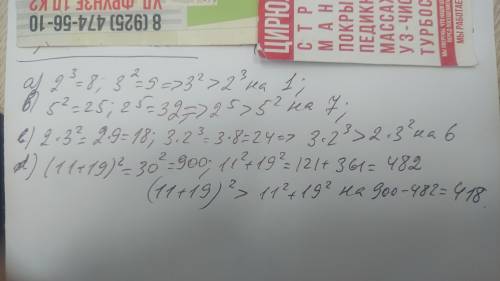 УЛ. ФРУНЗЕ 10 К2
8 (925) 474-56-10
ЦИРЮ
СТР
МАН
ПОКРЫ
ПЕДИКЮ
МАССАЖ
УЗ-ЧИС
ТУРБОС
МЫ РАБОТАЕ
a) 2³=8; 3²=9=>3²>2³ на 1;
b) 5²=25; 2⁵=32=>2⁵>5² на 7;
c) 2·3²=2·9=18; 3·2³=3·8=24=> 3·2³>2·3² на 6
d) (11+19)²=30²=900; 11²+19²=121+361=482
(11+19)²> 11²+19² на 900-482=418.